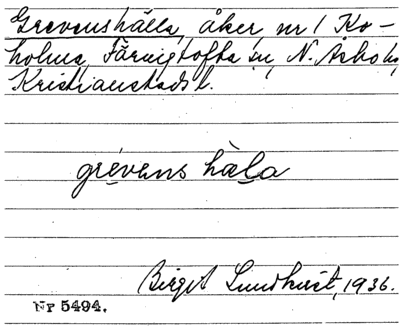 Grevenshälla, åker, nr 1 Ko-
holma, Färingtofta sn, N. Åsbo hd,
Kristianstads l.
grevens hala
Birgit Lundkvist, 1936.
Nr 5494.